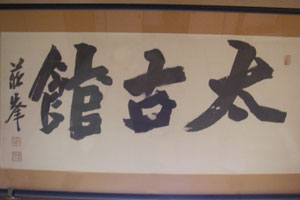 太古館
莊峯